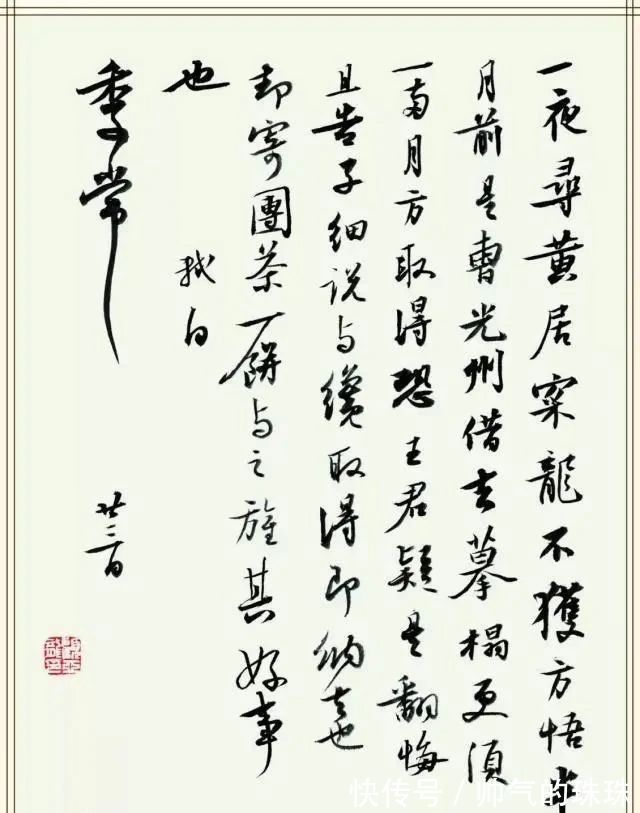 一夜尋黄居寀龍不獲方悟半
月前是曹光州借去摹搨更須
一两月方取得恐王君疑是翻悔
且告子細説与纔取得即納去也
却寄團茶一餅与之旌其好事
也
軾白
季常
廿三日
快传号 / 帅气的珠珠